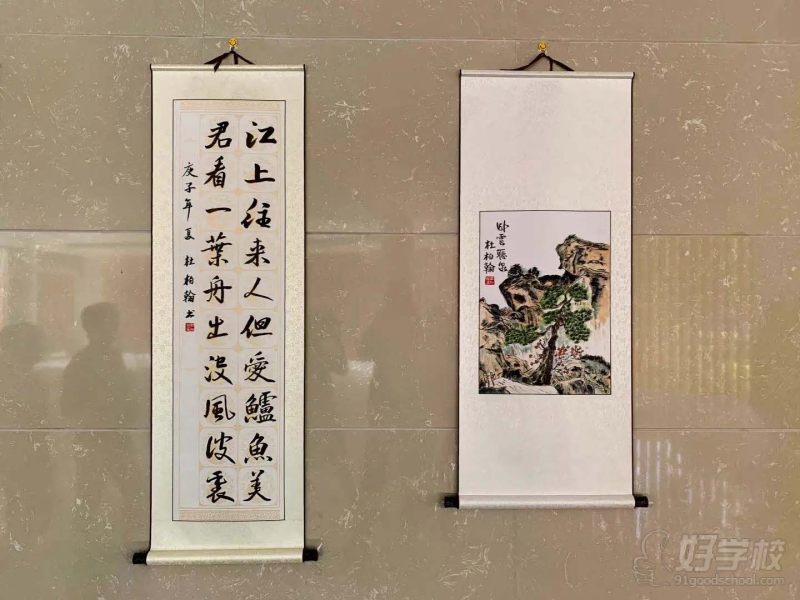 江上往来人但愛鱸魚美
君看一葉舟出没風波裏
庚子年夏 杜柏翰书
卧雲聽泉
杜柏翰
好学校
91goodschool.com